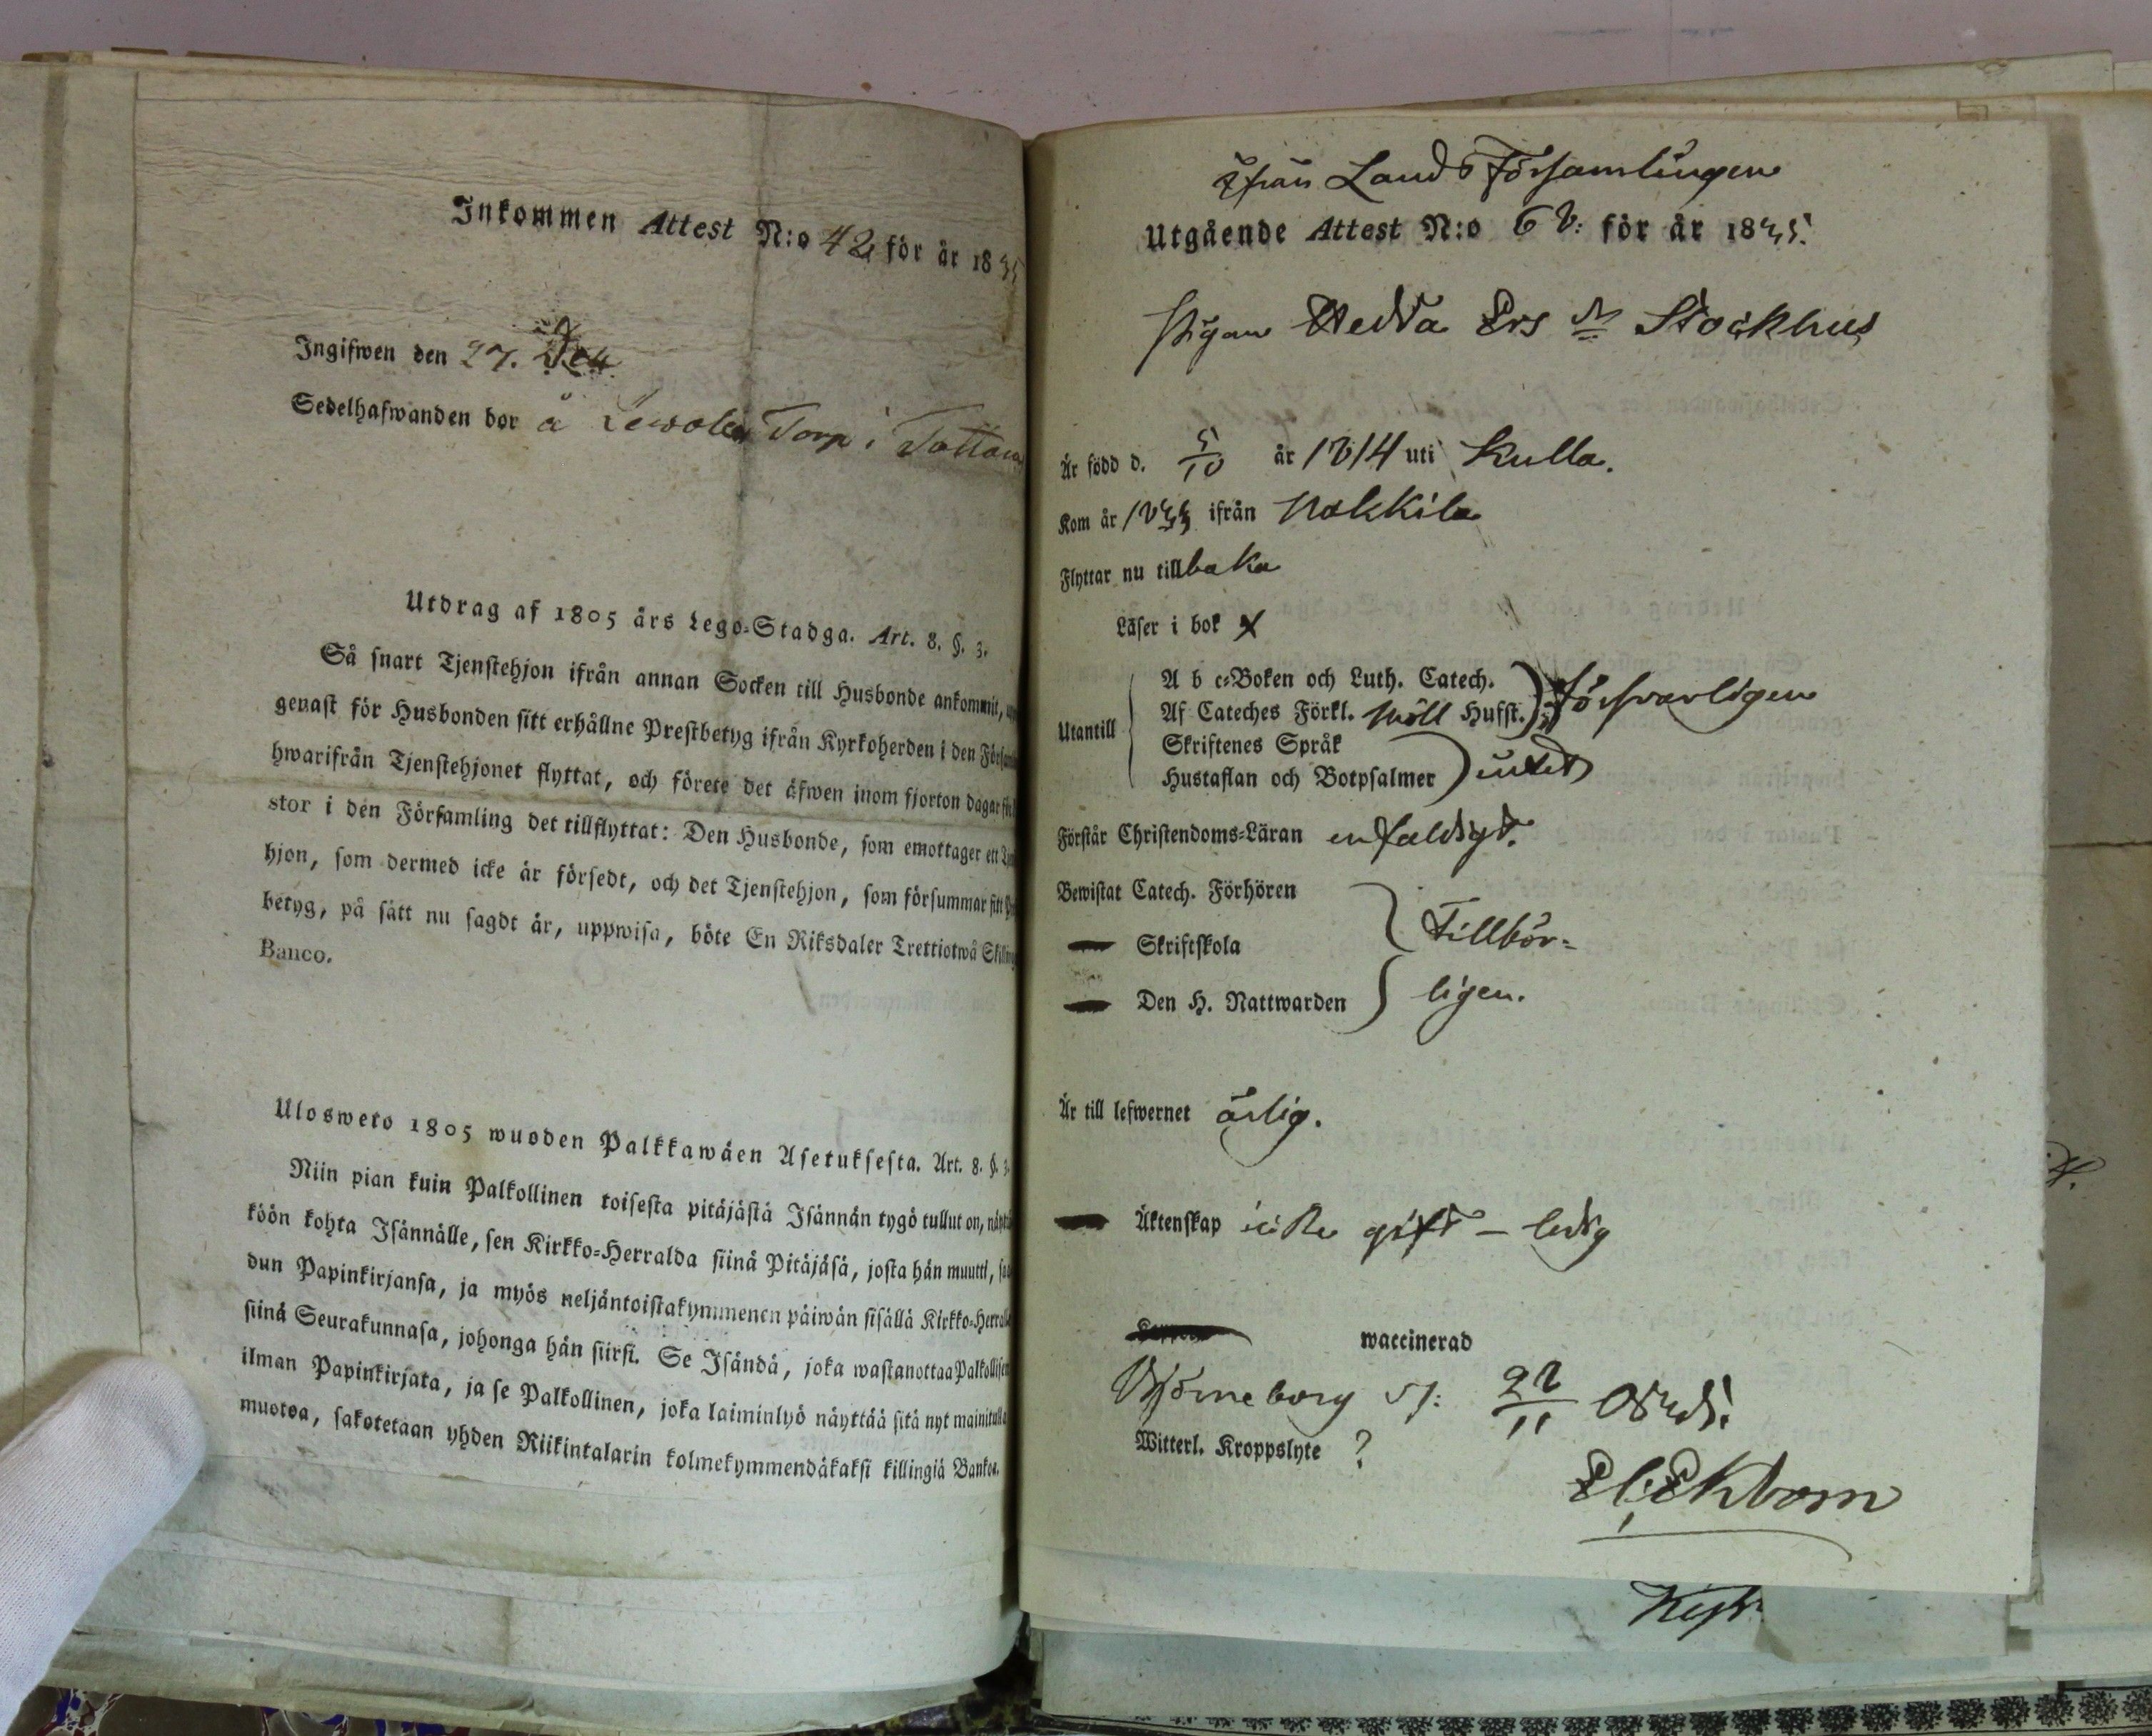 Inkommen Attest N:o 42 för år 1835
Ingifwen den 27. Dec
Sedelhafwanden bor å Torp i
Utdrag af 1805 års Lego-Stadga. Art. 8. §. 3.
Så snart Tjenstehjon ifrån annan Socken till Husbonde ankommit,
genast för Husbonden sitt erhållne Prestbetyg ifrån Kyrkoherden i den
hwarifrån Tjenstehjonet flyttat, och förete det äfwen inom fjorton dagar
stor i den Församling det tillflyttat: Den Husbonde, som emottager ett
hjon, som dermed icke är försedt, och det Tjenstehjon, som försummar sitt
betyg, på sätt nu sagdt är, uppwisa, böte En Riksdaler Trettiotwå
Banco.
Ulosweto 1805 wuoden Palkkawäen Asetuksesta. Art. 8. §. 3.
Niin pian kuin Palkollinen toisesta pitäjästä Isännän tygö tullut on,
köön kohta Isännälle, sen Kirkko-Herralda siinä Pitäjäsä, josta hän muutti,
dun Papinkirjansa, ja myös neljäntoistakymmenen päiwän sisällä
siinä Seurakunnasa, johonga hän siirsi. Se Isändä, joka wastanottaa
ilman Papinkirjata, ja se Palkollinen, joka laiminlyö näyttää sitä nyt
muotoa, saketetaan yhden Riikintalarin kolmekymmendäkaksi killingiä Bankoa.
Ifrån Lands Församlingen
Utgående Attest N:o 68: för år 1835.
Pigan Hedda Ers Dr Stockhus
Är född d. 5/10 år 1814 uti Kulla.
Kom år 1833 ifrån Nakkila
Flyttar nu tillbaka
Läser i bok x
Utantill
A b c-Boken och Luth. Catech.
Af Cateches Förkl. Möll Hufst. försvarligen
Skriftenes Språk
Hustaflan och Botpsalmer intet
Förstår Christendoms-Läran enfaldigt.
Bewistat Catech. Förhören
— Skriftskola Tillbör-
— Den H. Nattwarden ligen.
Är till lefwernet ärlig.
— Äktenskap icke gift – ledig
waccinerad
Björneborg d: 28/11 1835.
Witterl. Kroppslyte ?
El; Ekbom